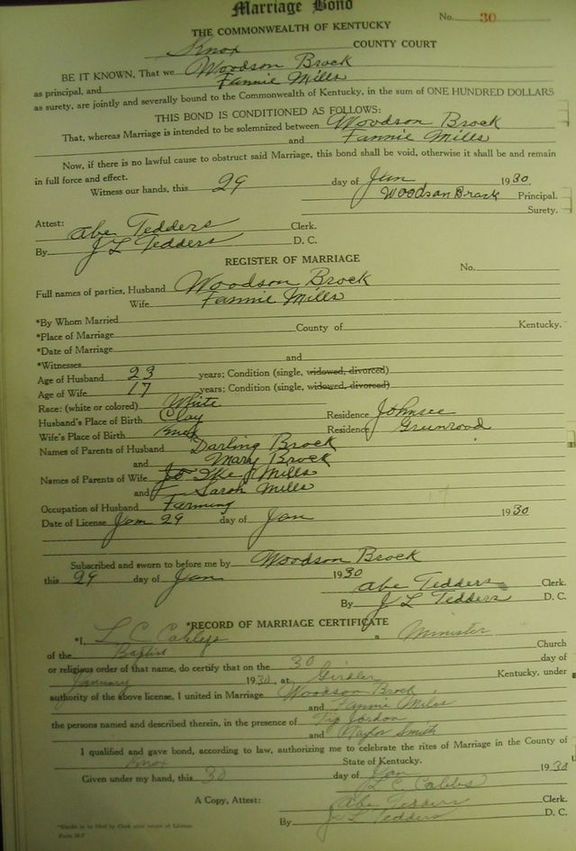 Marriage Bond
No. 30
THE COMMONWEALTH OF KENTUCKY
Knox COUNTY COURT
BE IT KNOWN, That we Woodson Brock
as principal, and Fannie Mills
as surety, are jointly and severally bound to the Commonwealth of Kentucky, in the sum of ONE HUNDRED DOLLARS
THIS BOND IS CONDITIONED AS FOLLOWS:
That, whereas Marriage is intended to be solemnized between Woodson Brock
and Fannie Mills
Now, if there is no lawful cause to obstruct said Marriage, this bond shall be void, otherwise it shall be and remain
in full force and effect.
Witness our hands, this 29 day of Jan 1930
Woodson Brock Principal.
Surety.
Attest: Abe Tedders Clerk.
By J L Tedders D. C.
REGISTER OF MARRIAGE
No.
Full names of parties, Husband Woodson Brock
Wife Fannie Mills
*By Whom Married
*Place of Marriage County of Kentucky.
*Date of Marriage
*Witnesses and
Age of Husband 23 years; Condition (single, widowed, divorced)
Age of Wife 17 years; Condition (single, widowed, divorced)
Race: (white or colored) White
Husband's Place of Birth Clay Residence
Wife's Place of Birth Knox Residence
Names of Parents of Husband Darling Brock
and Mary Brock
Names of Parents of Wife Ike Mills
and Sarah Mills
Occupation of Husband Farming
Date of License Jan 29 day of Jan 1930
Subscribed and sworn to before me by Woodson Brock
this 29 day of Jan 1930
Abe Tedders Clerk.
By J L Tedders D. C.
*RECORD OF MARRIAGE CERTIFICATE
*I, L C a Minister
of the Baptist Church
or religious order of that name, do certify that on the 30 day of
January 1930, at Girdler Kentucky, under
authority of the above license, I united in Marriage Woodson Brock
and Fannie Mills
the persons named and described therein, in the presence of Jordon
and Taylor Smith
I qualified and gave bond, according to law, authorizing me to celebrate the rites of Marriage in the County of
Knox State of Kentucky.
Given under my hand, this 30 day of Jan 1930
L C
A Copy, Attest: Abe Tedders Clerk.
By J L Tedders D. C.